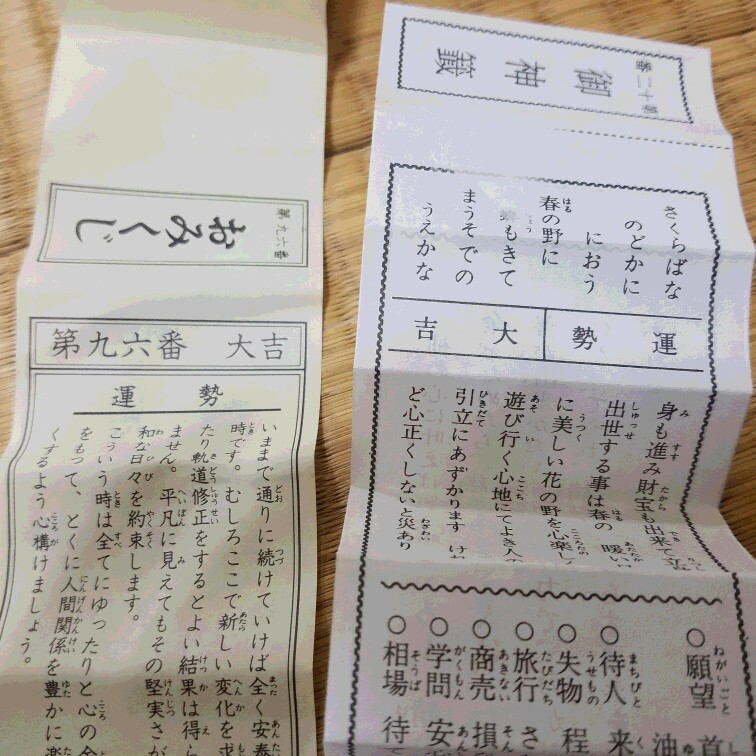 第九六番
おみくじ
第九六番 大吉
運勢
いままで通りに続けていけば全く安泰
時です。むしろここで新しい変化を求
たり軌道修正をするとよい結果は得ら
ません。平凡に見えてもその堅実さが
和な日々を約束します。
こういう時は全てにゆったりと心の余
をもって、とくに人間関係を豊かに楽
くするよう心構けましょう。
御神籤
さくらばな
のどかに
におう
春の野に
もきて
まうそでの
うえかな
運勢 大吉
身も進み財宝も出来て立
出世する事は春の 暖い
に美しい花の野を心楽し
遊び行く心地にてよき人の
引立にあずかります け
ど心正しくしないと災あり
○願望 首
油
○待人 来
○失物 程
○旅行 さ
○商売 損
○学問 安
○相場 待